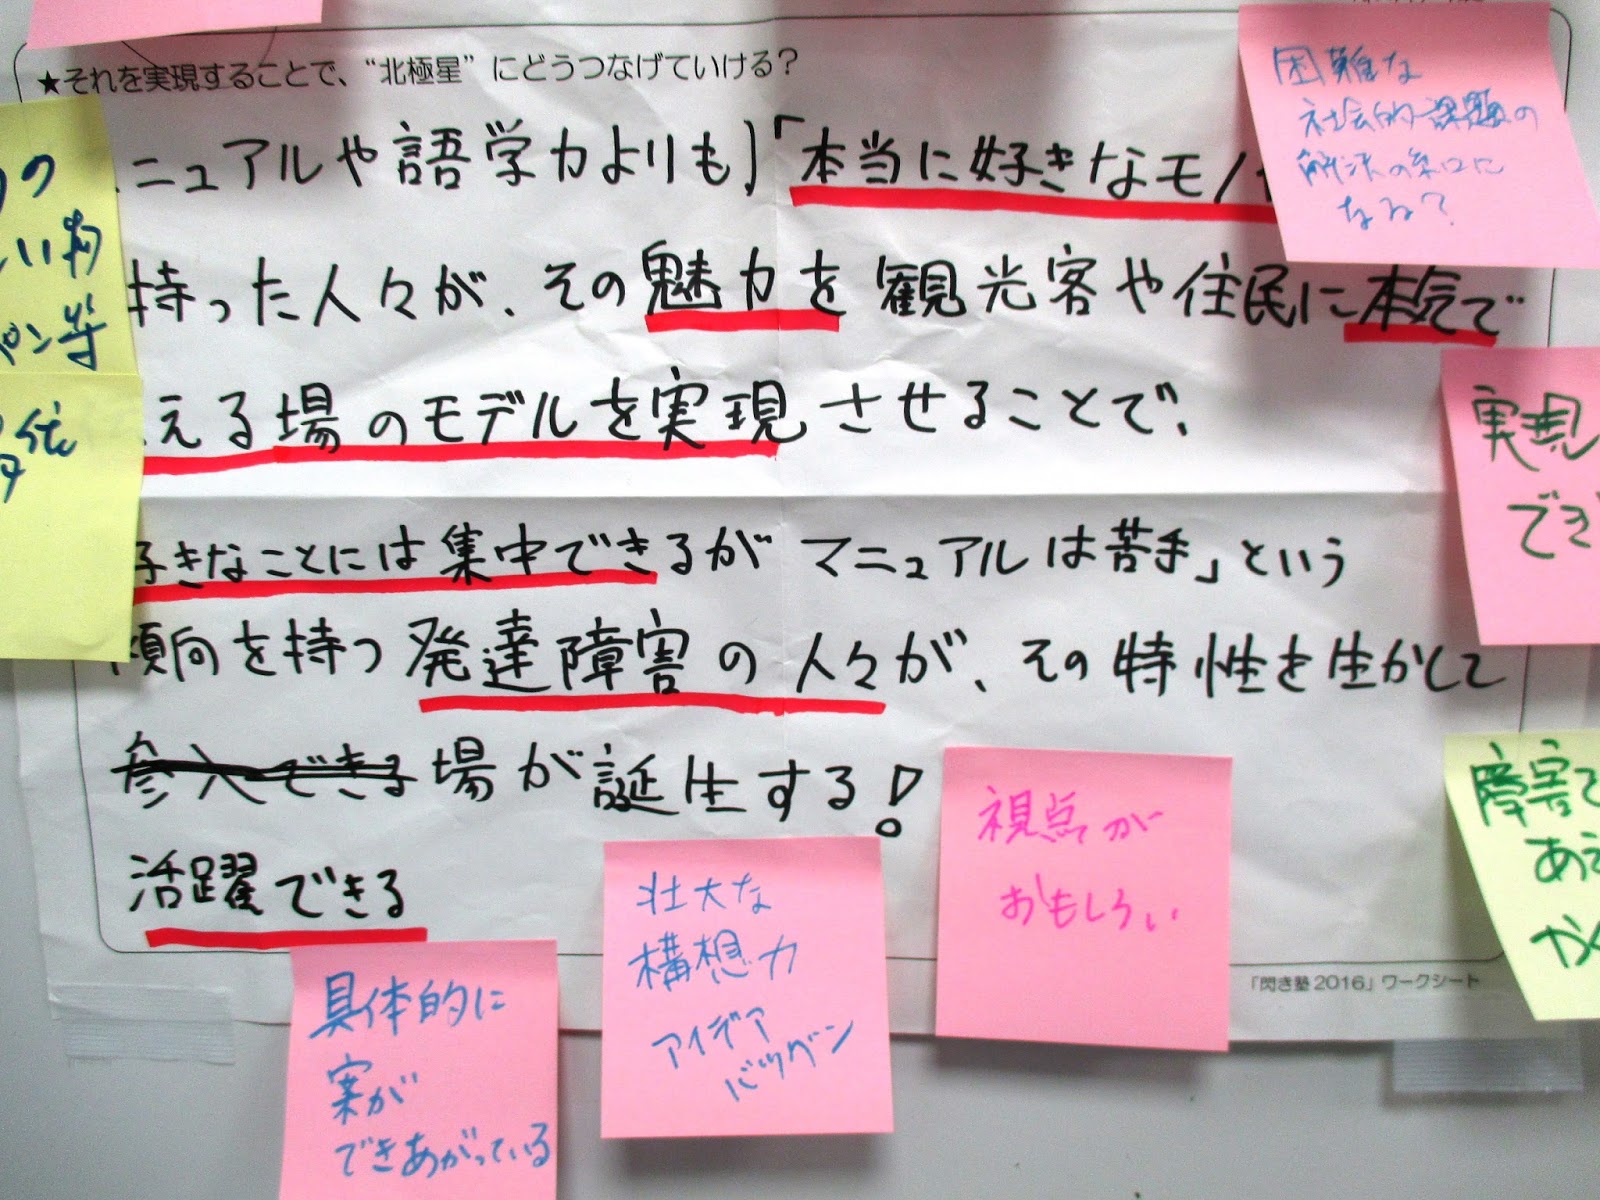 ★それを実現することで、“北極星”にどうつなげていける？
ニュアルや語学力よりも」「本当に好きなモノ
持った人々が、その魅力を観光客や住民に本気で
える場のモデルを実現させることで、
きなことには集中できるがマニュアルは苦手」という
傾向を持つ発達障害の人々が、その特性を生かして
参入できる場が誕生する！
活躍できる
「閃き塾2016」ワークシート
困難な
社会的課題の
解決の糸口に
なる？
の
い物
ペン等
実現
でき
障害で
あ
視点が
おもしろい
壮大な
構想力
アイデア
バツグン
具体的に
案が
できあがっている